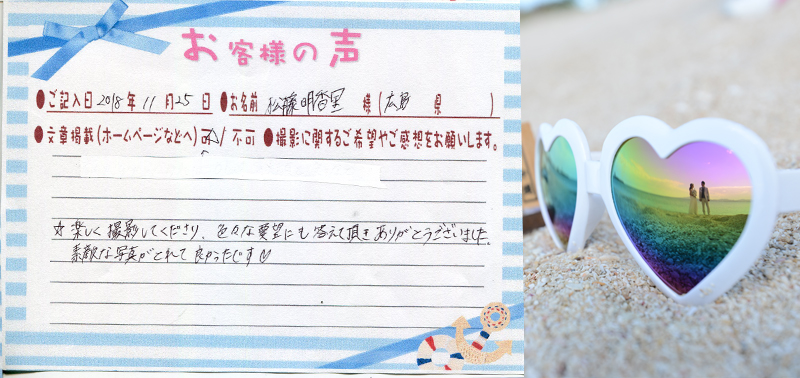 お客様の声
●ご記入日 2018年 11月25日 ●お名前 松藤明香里 様(広島 県 )
●文章掲載(ホームページなどへ) 可/不可 ●撮影に関するご希望やご感想をお願いします。
☆楽しく撮影してくださり、色々な要望にも答えて頂きありがとうございました。
素敵な写真がとれて良かったです♡